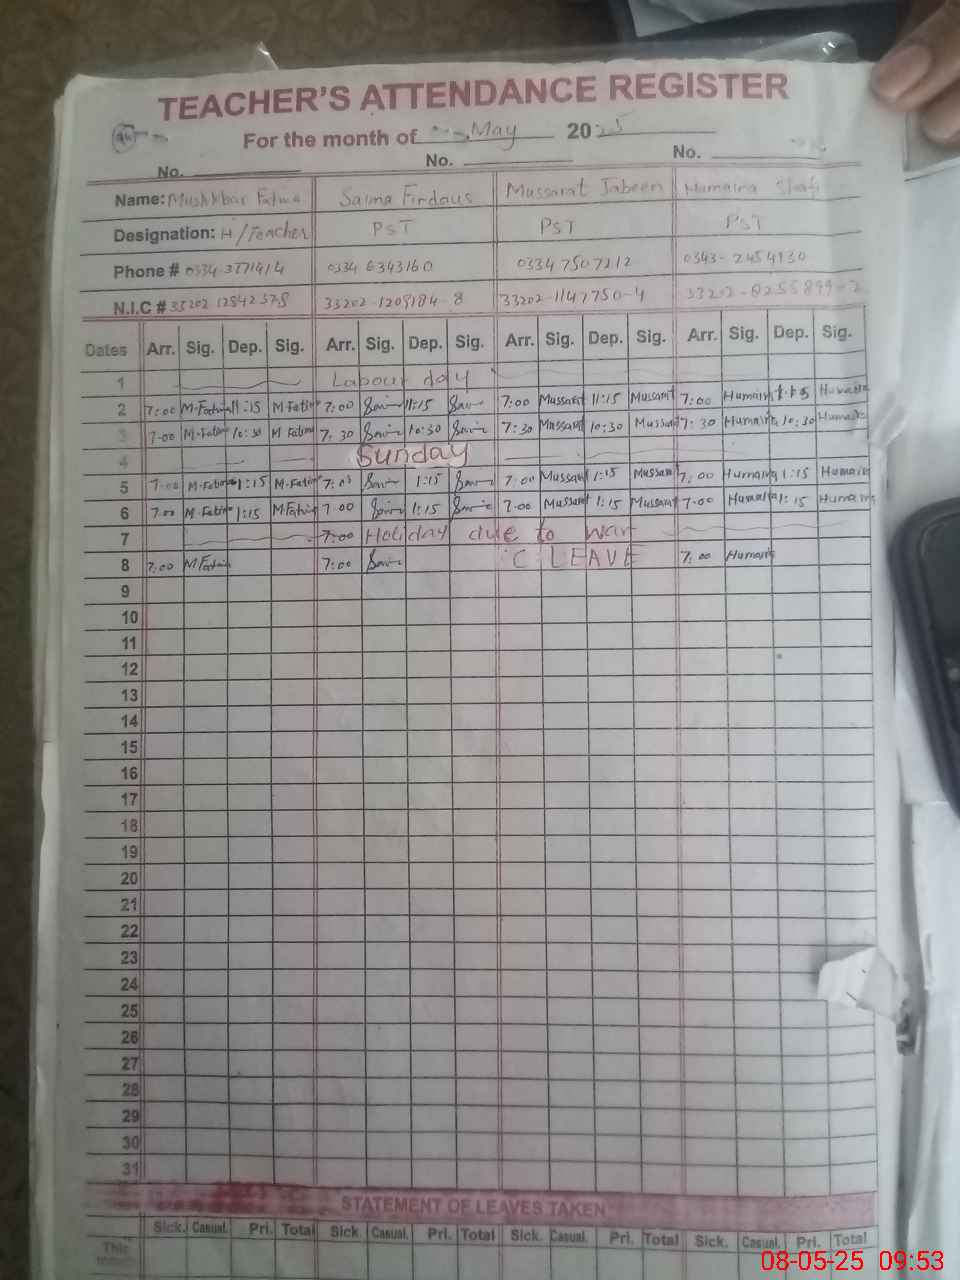 TEACHER'S ATTENDANCE REGISTER
For the month of May 2025
No. No. No.
Name: Mushkbar Fatima Saima Firdaus Mussarat Jabeen Humaira Shafi
Designation: H/Teacher PST PST PST
Phone # 0334 6343160 0334 7507212
N.I.C #
Dates Arr. Sig. Dep. Sig. Arr. Sig. Dep. Sig. Arr. Sig. Dep. Sig. Arr. Sig. Dep. Sig.
1 Labour day
2 7:00 M.Fatima 11:15 M Fatima 7:00 11:15 7:00 Mussarat 11:15 Mussarat 7:00 Humaira Humaira
3 7:00 M.Fatima 10:30 M Fatima 7:30 10:30 7:30 Mussarat 10:30 Mussarat 7:30 Humaira 10:30 Humaira
4 Sunday
5 7:00 M.Fatima 1:15 M.Fatima 7:00 1:15 7:00 Mussarat 1:15 Mussarat 7:00 Humaira 1:15 Humaira
6 7:00 M.Fatima 1:15 M.Fatima 7:00 1:15 7:00 Mussarat 1:15 Mussarat 7:00 Humaira 1:15 Humaira
7 7:00 Holiday due to war
8 7:00 M Fatima 7:00 C. LEAVE 7:00 Humaira
9
10
11
12
13
14
15
16
17
18
19
20
21
22
23
24
25
26
27
28
29
30
31
STATEMENT OF LEAVES TAKEN
Sick. Casual. Pri. Total Sick. Casual. Pri. Total Sick. Casual. Pri. Total Sick. Casual. Pri. Total
This
08-05-25 09:53